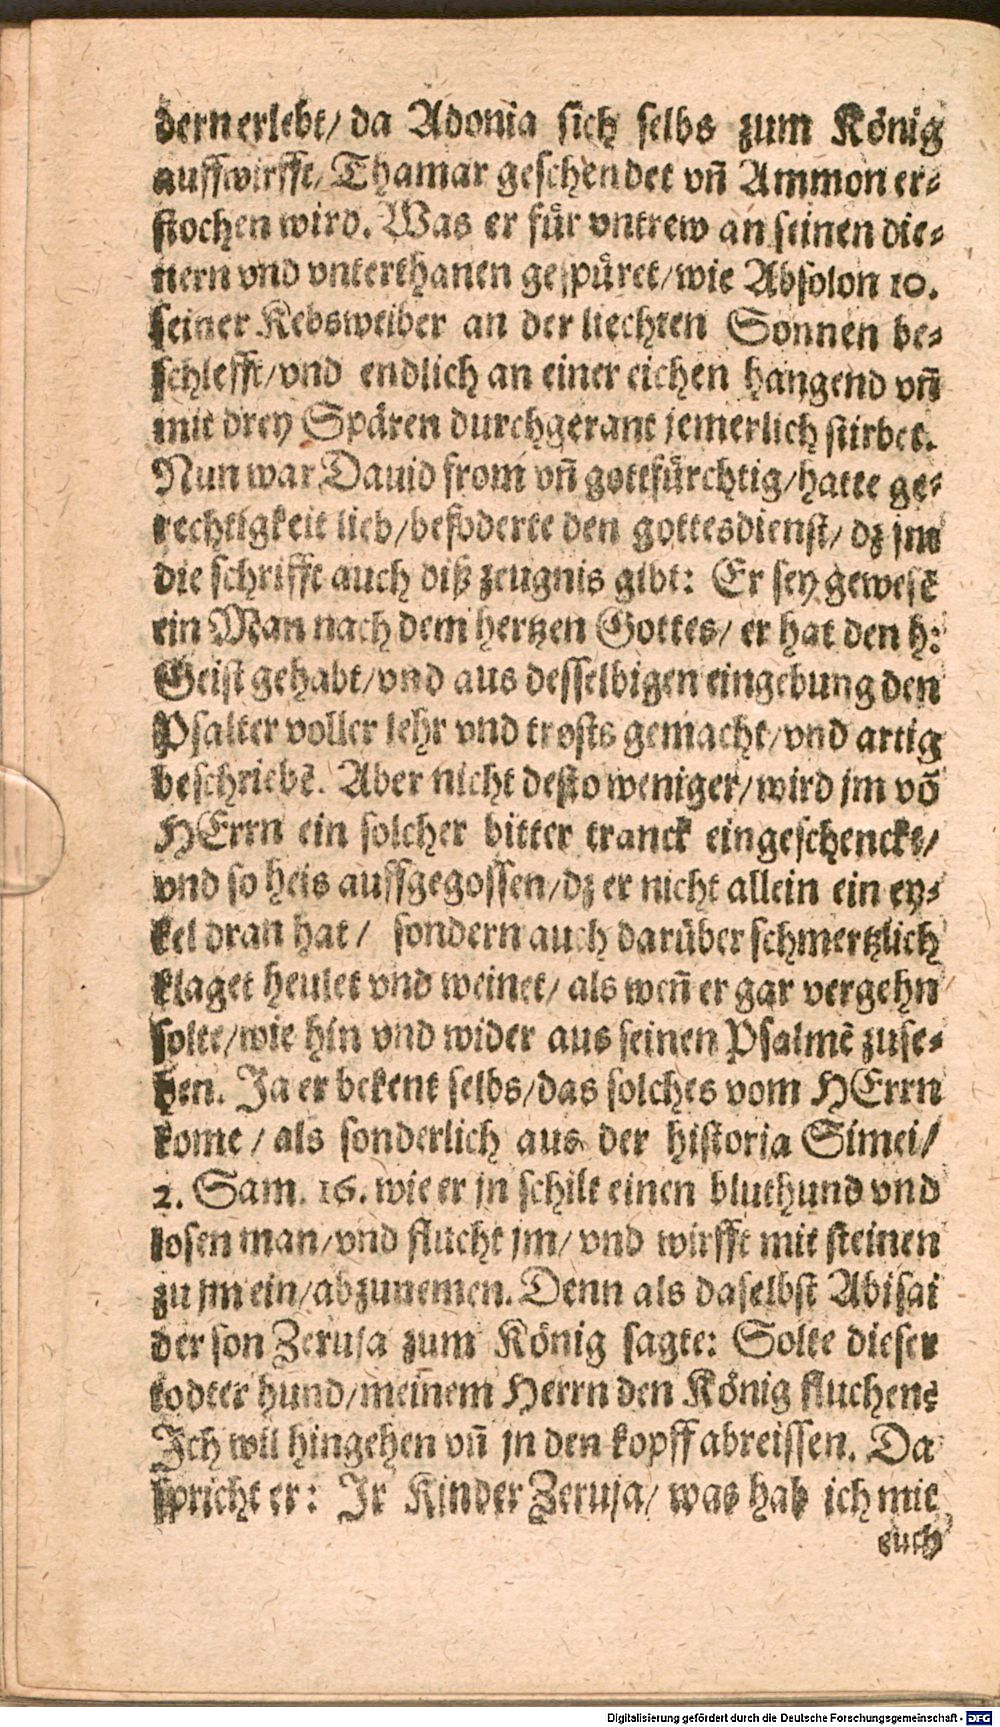 dern erlebt/ da Adonia sich selbs zum König
auffwirfft/ Thamar geschendet vñ Ammon er⸗
stochen wird. Was er fuͤr vntrew an seinen die⸗
nern vnd vnterthanen gespuͤret/ wie Absolon 10.
seiner Kebsweiber an der liechten Sonnen be⸗
schlefft/ vnd endlich an einer eichen hangend vñ
mit drey Spaͤren durchgerant jemerlich stirbet.
Nun war Dauid from vñ gottfuͤrchtig/ hatte ge⸗
rechtigkeit lieb/ befoderte den gottesdienst/ dz jm
die schrifft auch diß zeugnis gibt: Er sey gewesẽ
ein Man nach dem hertzen Gottes/ er hat den h:
Geist gehabt/ vnd aus desselbigen eingebung den
Psalter voller lehr vnd trosts gemacht/ vnd artig
beschriebẽ. Aber nicht desto weniger/ wird jm võ
HErrn ein solcher bitter tranck eingeschenckt/
vnd so heis auffgegossen/ dz er nicht allein ein ey⸗
kel dran hat/ sondern auch daruͤber schmertzlich
klaget heulet vnd weinet/ als weñ er gar vergehn
solte/ wie hin vnd wider aus seinen Psalmẽ zuse⸗
hen. Ja er bekent selbs/ das solches vom HErrn
kome/ als sonderlich aus der historia Simei/
2. Sam. 16. wie er jn schilt einen bluthund vnd
losen man/ vnd flucht jm/ vnd wirfft mit steinen
zu jm ein/ abzunemen. Denn als daselbst Abisai
der son Zeruja zum König sagte: Solte dieser
todter hund/ meinem Herrn den König fluchen?
Ich wil hingehen vñ jn den kopff abreissen. Da
spricht er: Jr Kinder Zeruja/ was hab ich mit
euch
Digitalisierung gefördert durch die Deutsche Forschungsgemeinschaft - DFG